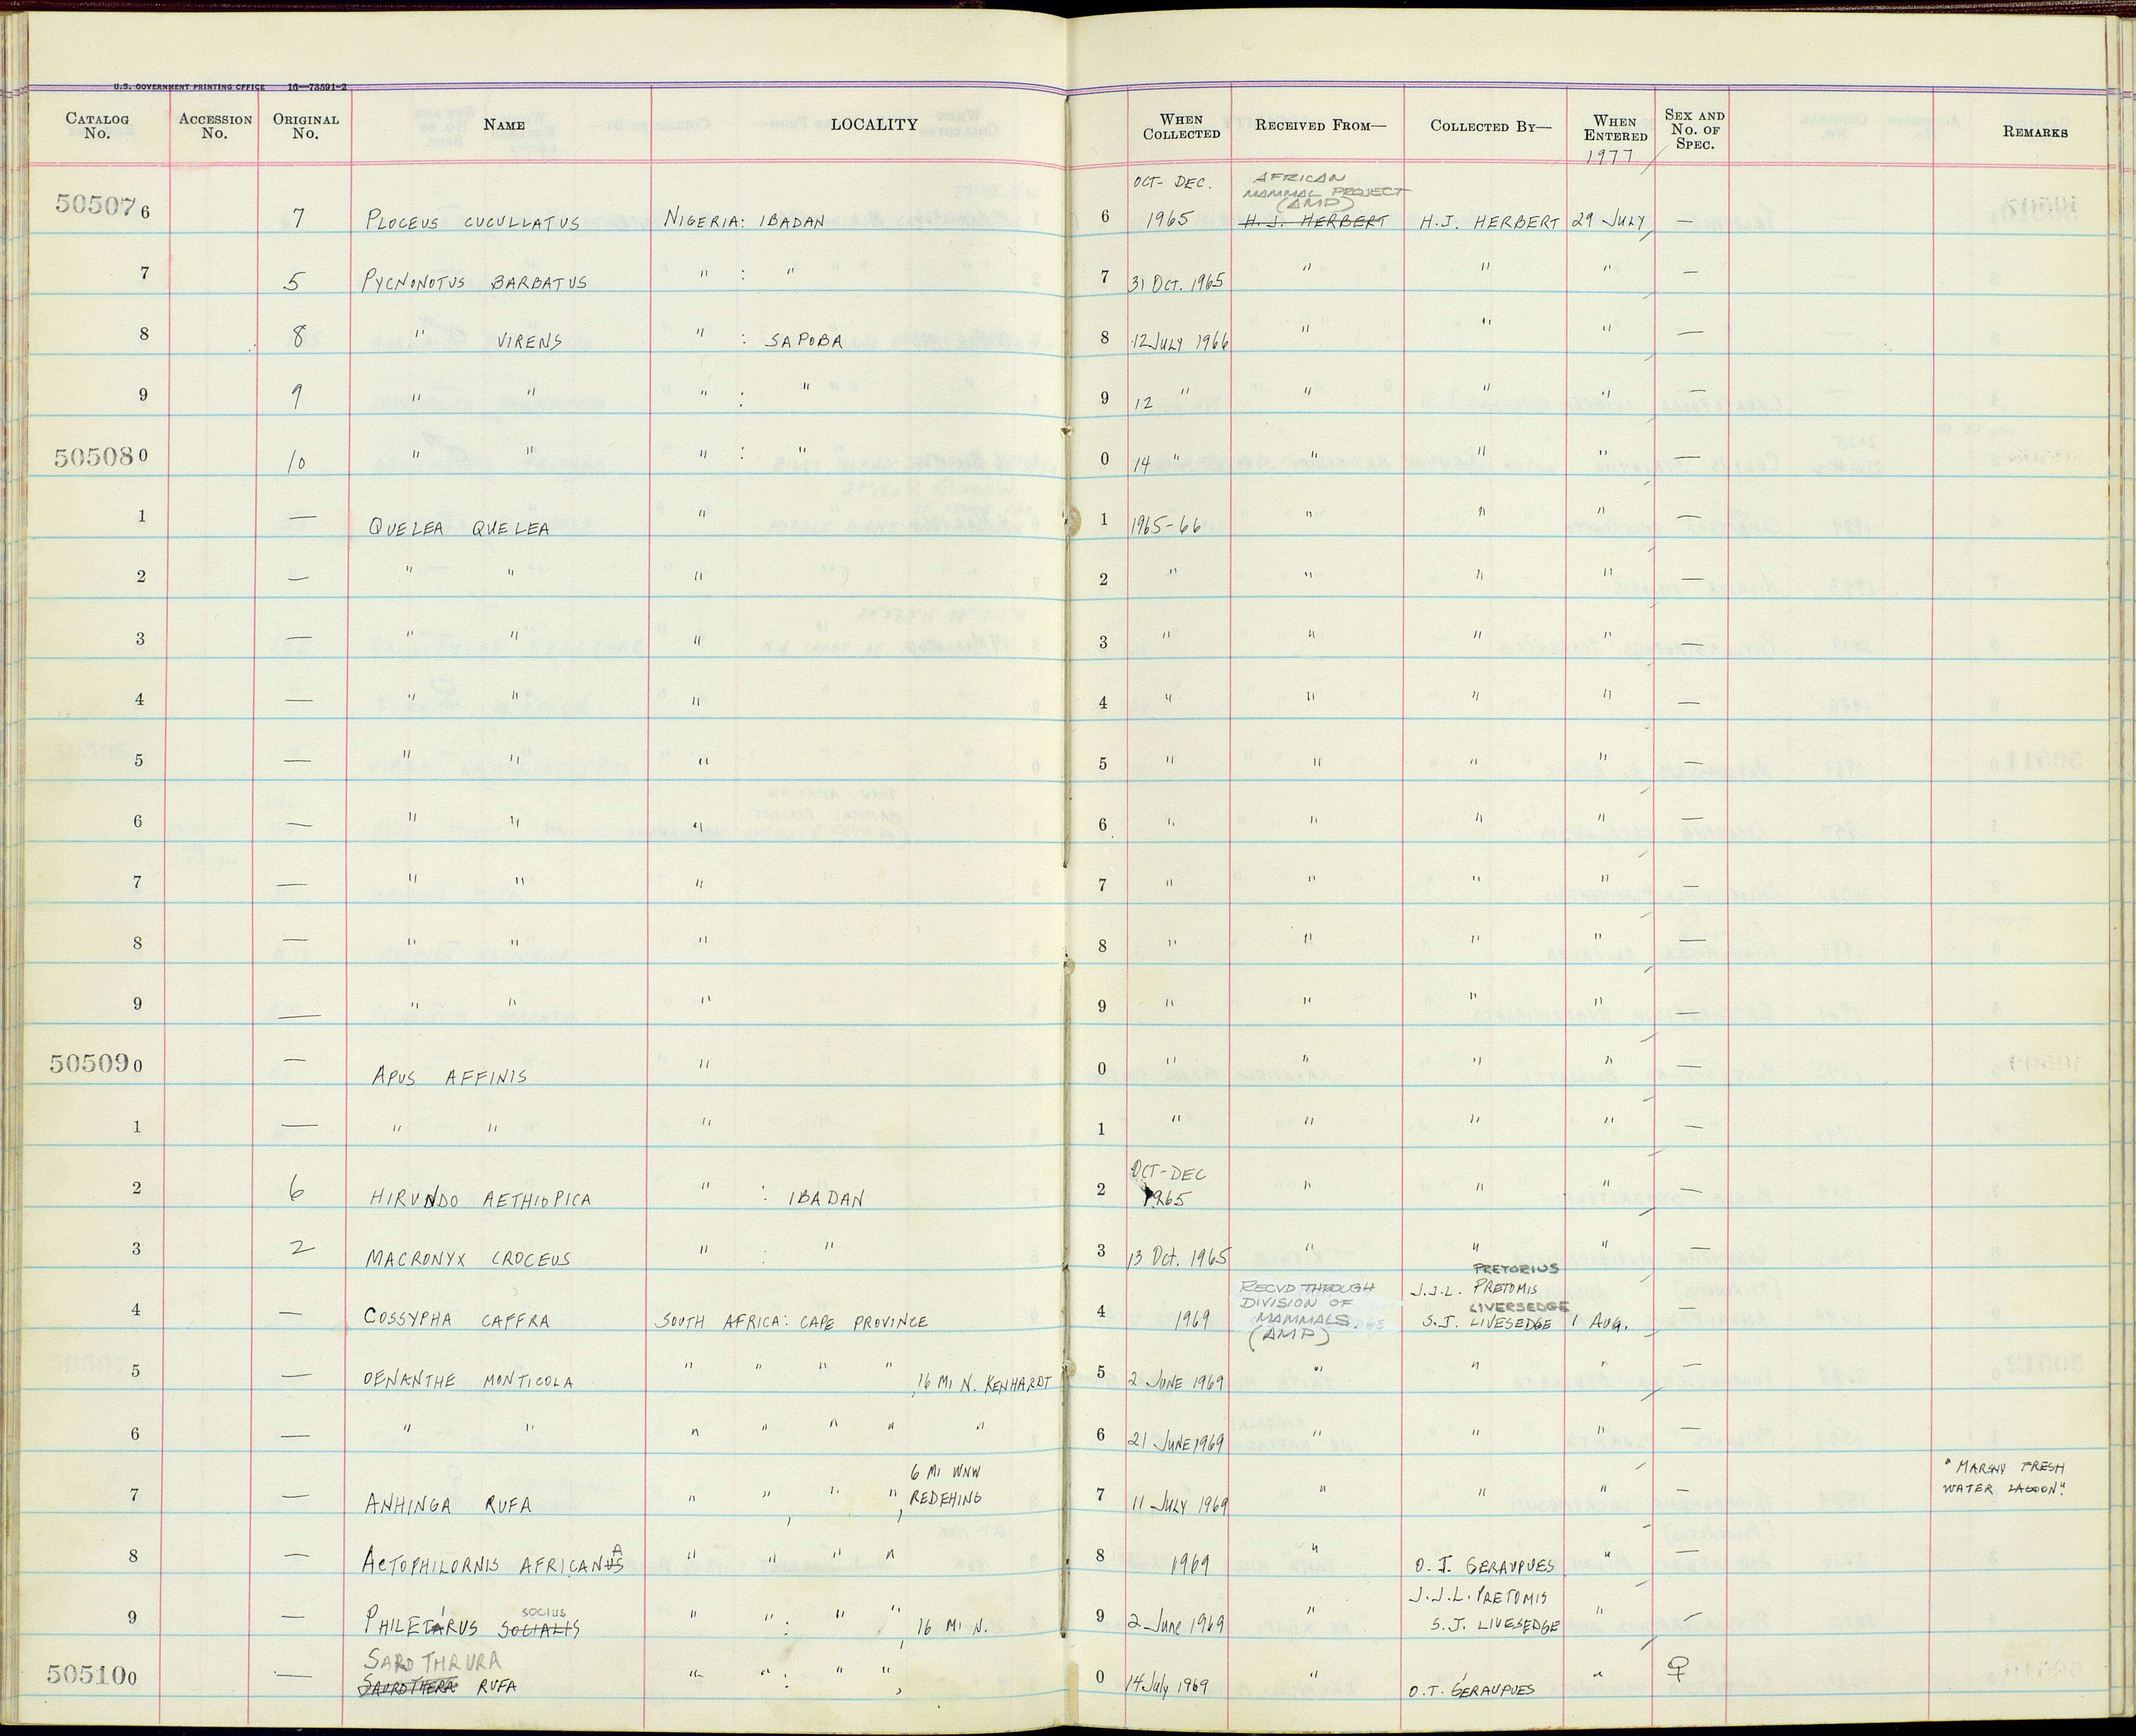 U.S. GOVERNMENT PRINTING OFFICE 16—73591-2
CATALOG No. ACCESSION No. ORIGINAL No. NAME LOCALITY WHEN COLLECTED RECEIVED FROM— COLLECTED BY— WHEN ENTERED SEX AND No. OF SPEC. REMARKS
1977
OCT- DEC. AFRICAN
MAMMAL PROJECT
(AMP)
505076 7 PLOCEUS CUCULLATUS NIGERIA: IBADAN 6 1965 H.J. HERBERT H.J. HERBERT 29 JULY —
7 5 PYCNONOTUS BARBATUS " : " 7 31 OCT. 1965 " " " —
8 8 " VIRENS " : SAPOBA 8 12 JULY 1966 " " " —
9 9 " " " : " 9 12 " " " " —
505080 10 " " " : " 0 14 " " " " —
1 — QUELEA QUELEA " 1 1965-66 " " " —
2 — " " " 2 " " " " —
3 — " " " 3 " " " " —
4 — " " " 4 " " " " —
5 — " " " 5 " " " " —
6 — " " " 6 " " " " —
7 — " " " 7 " " " " —
8 — " " " 8 " " " " —
9 — " " " 9 " " " " —
505090 — APUS AFFINIS " 0 " " " " —
1 — " " " 1 " " " " —
OCT-DEC
2 6 HIRUNDO AETHIOPICA " : IBADAN 2 1965 " " " —
3 2 MACRONYX CROCEUS " : " 3 13 Oct. 1965 " " " —
PRETORIUS
RECVD THROUGH J.J.L. PRETOMIS
DIVISION OF LIVERSEDGE
4 — COSSYPHA CAFFRA SOUTH AFRICA: CAPE PROVINCE 4 1969 MAMMALS S.J. LIVESEDGE 1 AUG. —
(AMP)
5 — OENANTHE MONTICOLA " " " " , 16 MI N. KENHARDT 5 2 JUNE 1969 " " " —
6 — " " " " " " " 6 21 JUNE 1969 " " " —
6 MI WNW "MARSHY FRESH
7 — ANHINGA RUFA " " " " , REDEHING 7 11 JULY 1969 " " " — WATER LAGOON"
A
8 — ACTOPHILORNIS AFRICANUS " " " " 8 1969 " O.J. GERAUPUES " —
SOCIUS J.J.L. PRETOMIS
9 — PHILETARUS SOCIALIS " " : " " , 16 MI N. 9 2 June 1969 " S.J. LIVESEDGE " —
SAROTHRURA
505100 — SAUROTHERA RUFA " " : " " , 0 14 July 1969 " O.T. GERAUPUES " ♀